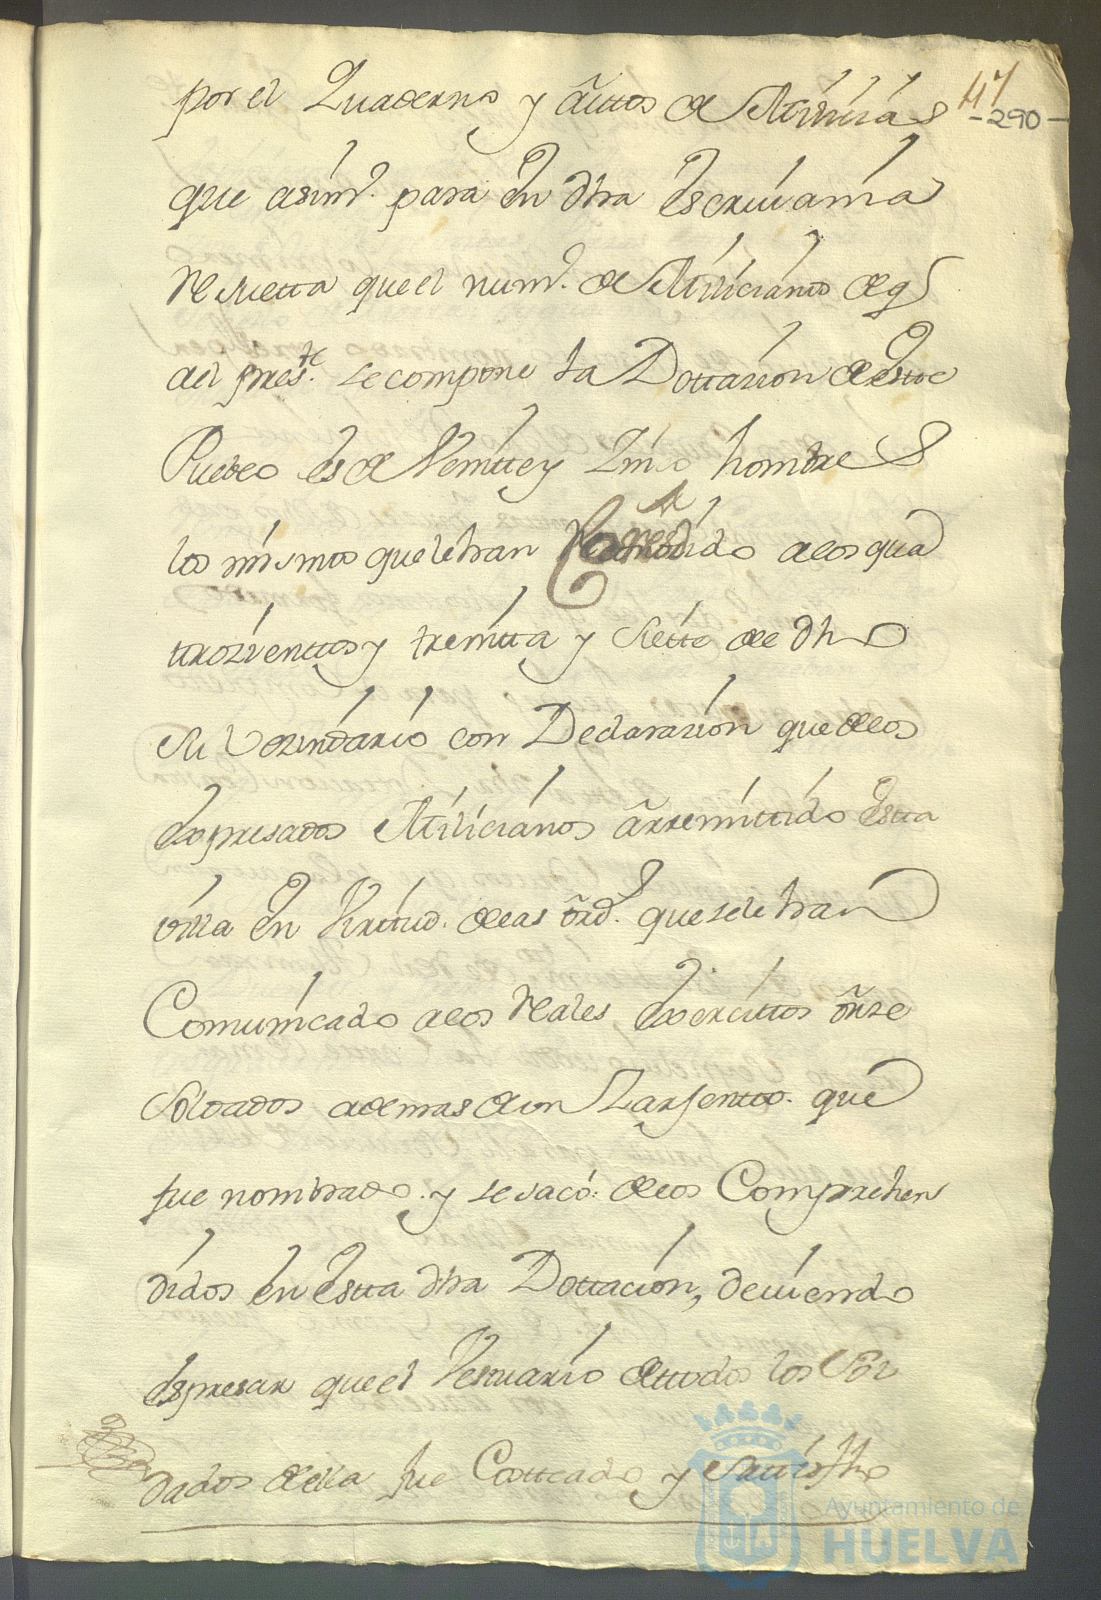 47
-290-
por el Quaderno y autos de Milicias
que asim.o para en dha Escriuania
resuelta que el num.o de Milicianos de q
al pres.te se compone la Dottazion de este
Pueblo es de Veintte y Zinco hombres
los mismos que le han Correspondido a los qua
trozienttos y treintta y siette de dho
su Vezindario con Declarazion que de los
Expresados Milicianos a rremittido esta
villa en Virtud de las ord.s que se le han
Comunicado a los Reales Exercittos onze
Soldados ademas de un Zarjentto que
fue nombrado y se sacó de los Comprehen
didos en Esta dha Dottacion, deuiendo
Espresar que el Vestuario de ttodos los Sol
dados de ella fue Costeado y Sattisfho
Ayuntamiento de
HUELVA